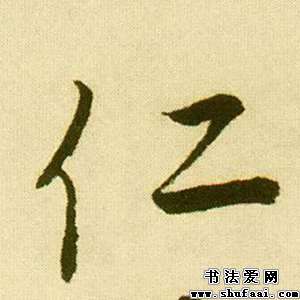 仁
书法爱网
www.shufaai.com